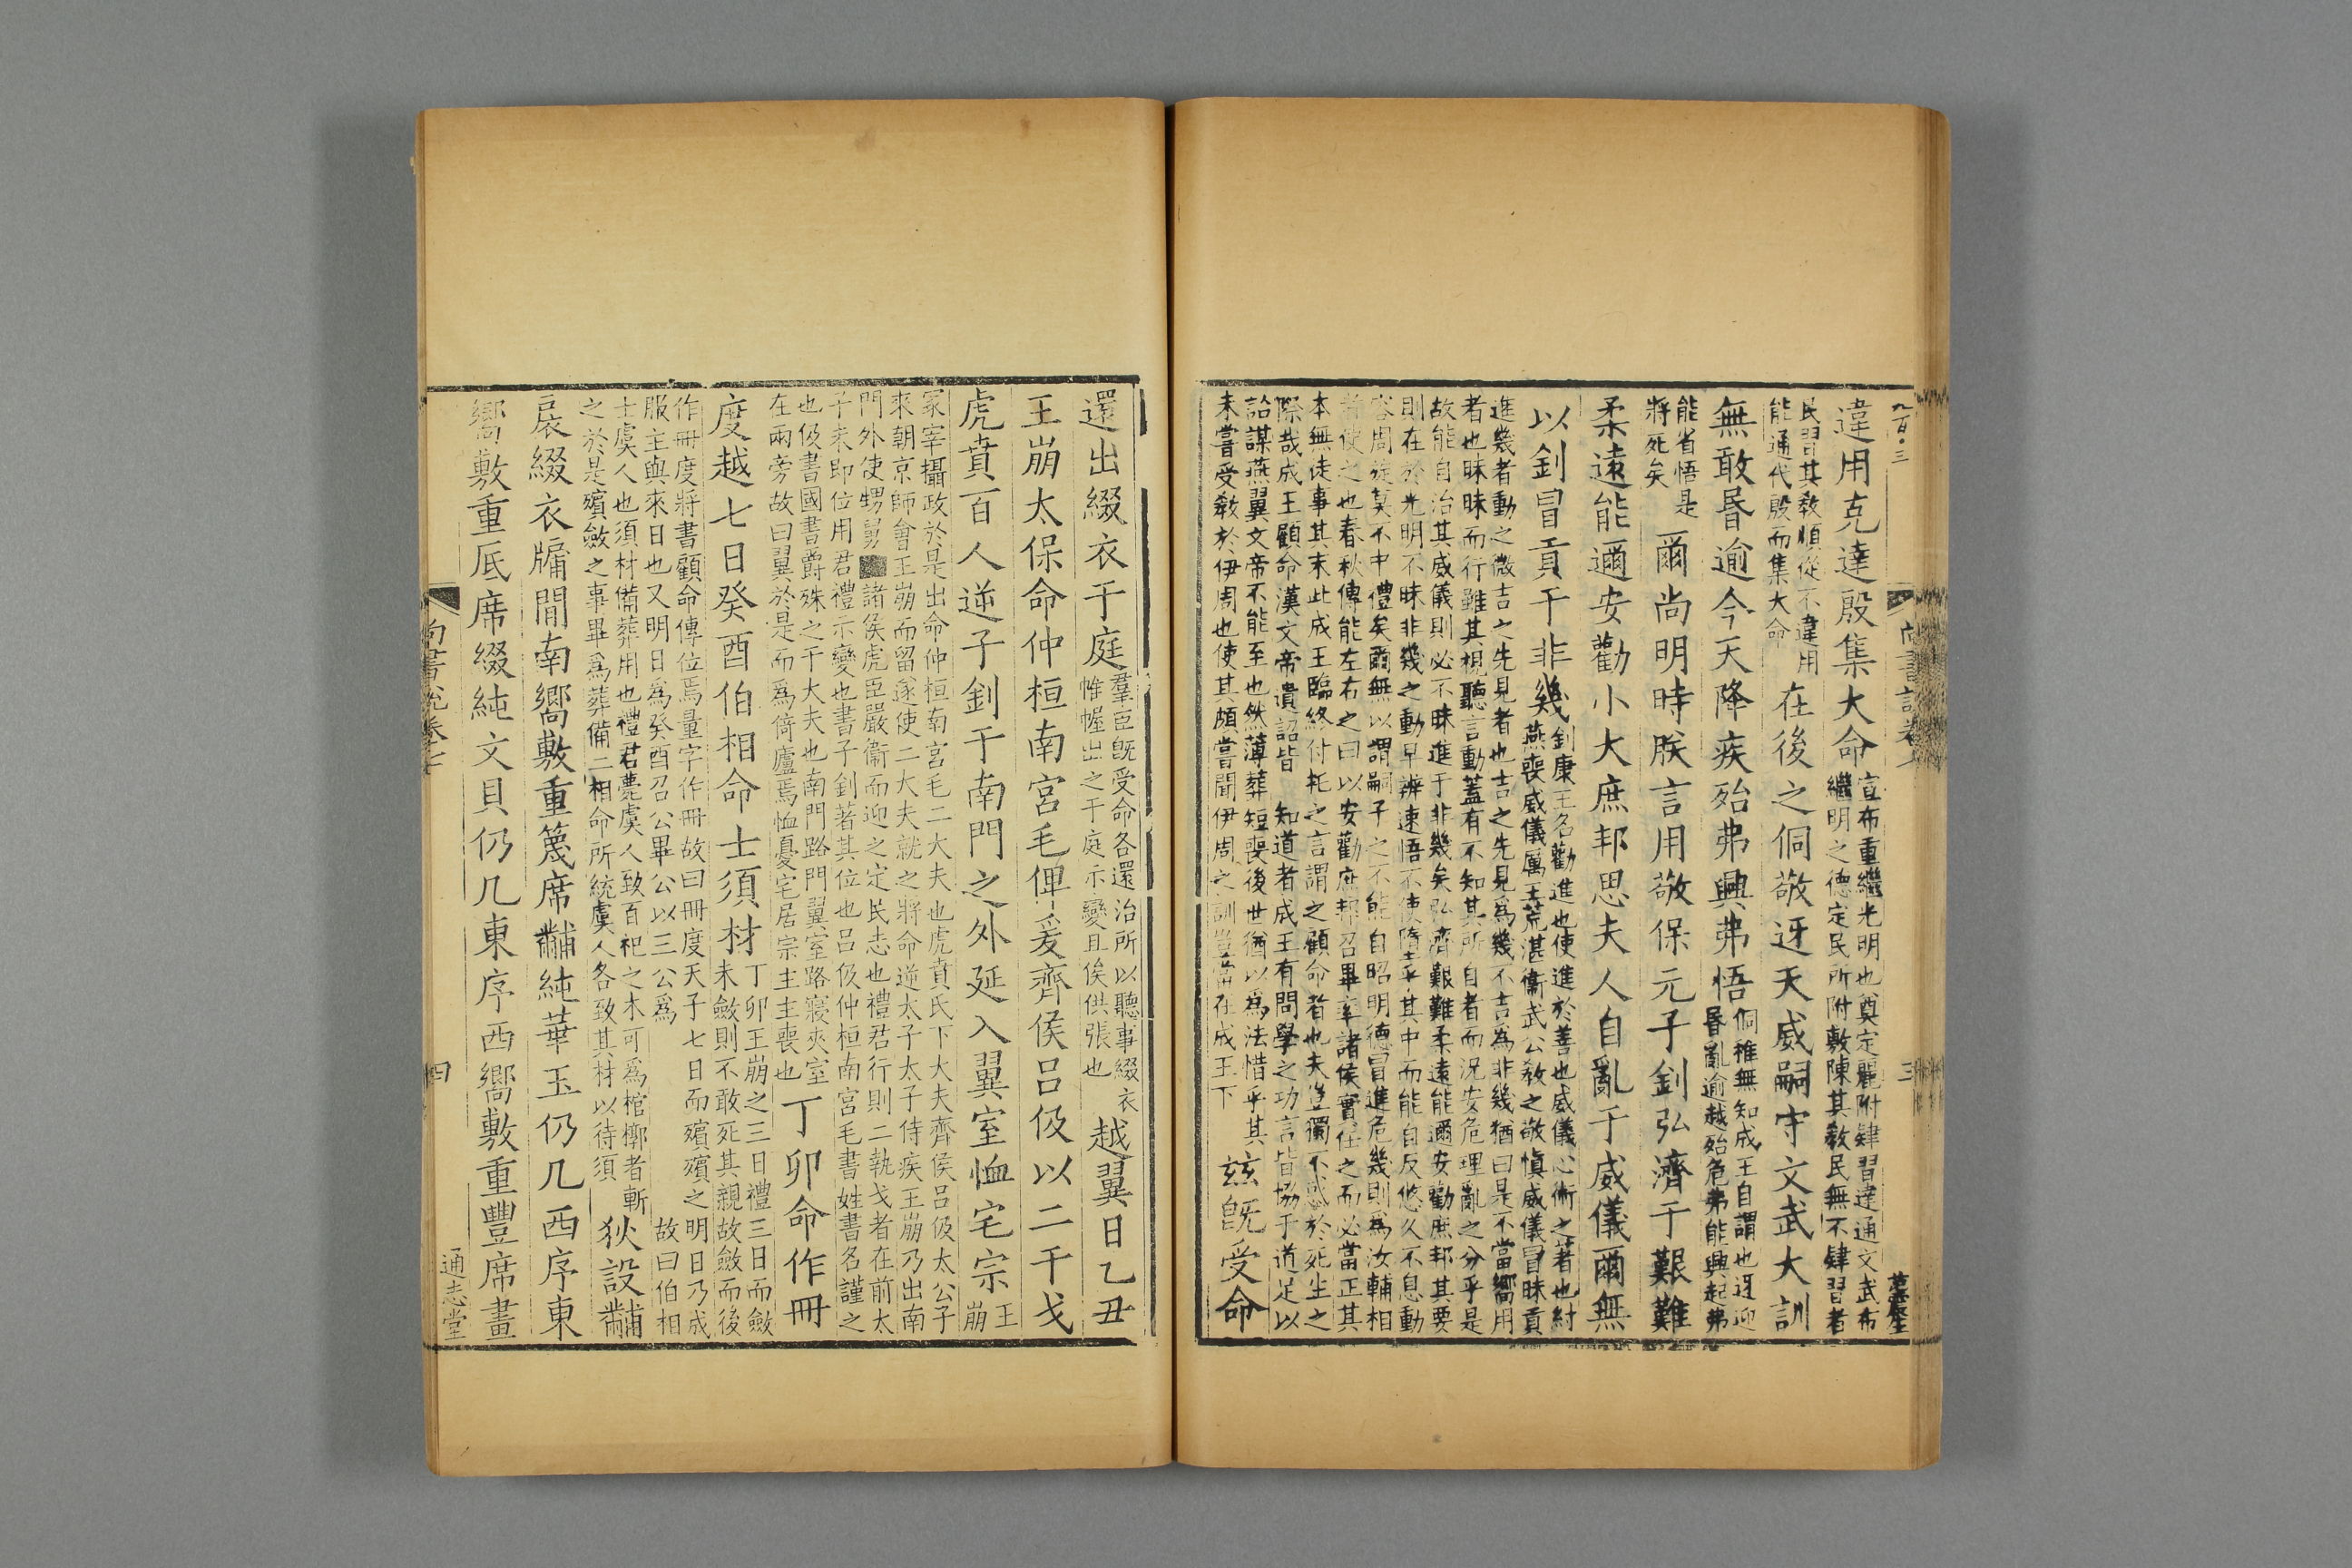 九百·三
尚書說卷
三
違用克達殷集大命
宣布重繼光明也奠定麗附肄習達通文武布
繼明之德定民所附敷陳其敎民無不肄習者
民習其敎順從不違用
能通代殷而集大命
在後之侗敬迓天威嗣守文武大訓
無敢昬逾今天降疾殆弗興弗悟
侗稚無知成王自謂也迓迎
昬亂逾越殆危弗能興起弗
能省悟是
將死矣
爾尚明時朕言用敬保元子釗弘濟于艱難
柔遠能邇安勸小大庶邦思夫人自亂于威儀爾無
以釗冒貢于非幾
釗康王名勸進也使進於善也威儀心術之著也紂
燕喪威儀厲王荒湛衞武公敎之敬愼威儀冒昧貢
進幾者動之微吉之先見者也吉之先見爲幾不吉爲非幾猶曰是不當嚮用
者也昧昧而行雖其視聽言動蓋有不知其所自者而況安危理亂之分乎是
故能自治其威儀則必不昧進于非幾矣弘濟艱難柔遠能邇安勸庶邦其要
則在於光明不昧非幾之動早辨速悟不使墮乎其中而能自反悠久不息動
容周旋莫不中禮矣爾無以謂嗣子之不能自昭明德冒進危幾則爲汝輔相
者使之也春秋傳能左右之曰以安勸庶邦召畢率諸侯實任之而必當正其
本無徒事其末此成王臨終付托之言謂之顧命者也夫豈獨不惑於死生之
際哉成王顧命漢文帝遺詔皆 知道者成王有問學之功言皆協于道足以
詒謀燕翼文帝不能至也然薄葬短喪後世猶以爲法惜乎其
未嘗受敎於伊周也使其頗嘗聞伊周之訓豈當在成王下
兹旣受命
還出綴衣于庭
羣臣旣受命各還治所以聽事綴衣
惟幄出之于庭示變且俟供張也
越翼日乙丑
王崩太保命仲桓南宮毛俾爰齊侯呂伋以二干戈
虎賁百人逆子釗于南門之外延入翼室恤宅宗
王
崩
冢宰攝政於是出命仲桓南宮毛二大夫也虎賁氏下大夫齊侯呂伋太公子
來朝京師會王崩而留遂使二大夫就之將命逆太子太子侍疾王崩乃出南
門外使甥舅 諸侯虎臣嚴衞而迎之定民志也禮君行則二執戈者在前太
子未即位用君禮示變也書子釗著其位也呂伋仲桓南宮毛書姓書名謹之
也伋書國書爵殊之于大夫也南門路門翼室路寢夾室
在兩旁故曰翼於是而爲倚廬焉恤憂宅居宗主主喪也
丁卯命作冊
度越七日癸酉伯相命士須材
丁卯王崩之三日禮三日而斂
未斂則不敢死其親故斂而後
作冊度將書顧命傳位焉量字作冊故曰冊度天子七日而殯殯之明日乃成
服主與來日也又明日爲癸酉召公畢公以三公爲 故曰伯相
士虞人也須材備葬用也禮君薨虞人致百祀之木可爲棺槨者斬
之於是殯斂之事畢爲葬備二相命所統虞人各致其材以待須
狄設黼
扆綴衣牖間南嚮敷重篾席黼純華玉仍几西序東
嚮敷重厎席綴純文貝仍几東序西嚮敷重豐席畫
尚書說卷七
四
通志堂